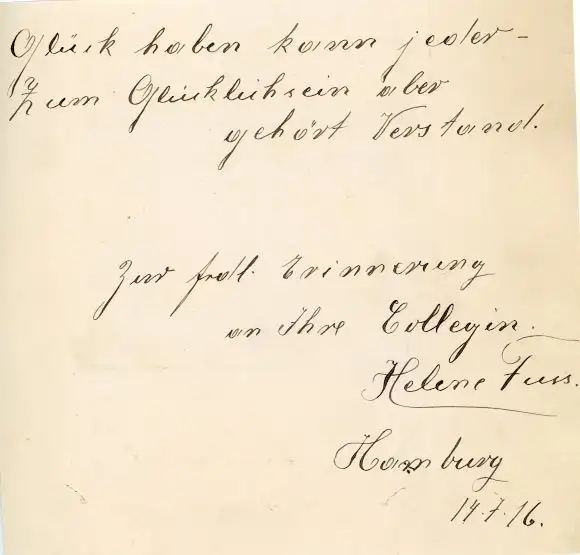 Glück haben kann jeder –
zum Glücklichsein aber
gehört Verstand.
Zur frdl. Erinnerung
an Ihre Collegin.
Helene Fuss.
Hamburg
14.7.16.